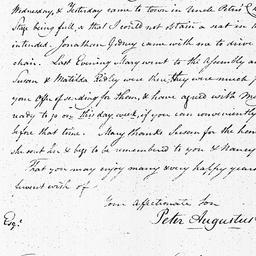 Wednesday, & Saturday came to town in Uncle Peters
Stage being full, & that I could not obtain a seat in
intended. Jonathan Gidney came with me to drive
chair. Last Evening Mary went to the Assembly a
Susan & Matilda Ridley were there, they were much
your offer of sending for them, & have agreed with me
ready to go on Thursday week, if you can conveniently
before that time. Mary thanks Susan for the
she sent her & begs to be remembered to you & Nancy
That you may enjoy many & very happy years
wish of
Your affectionate Son
Peter Augustus
Esqr.